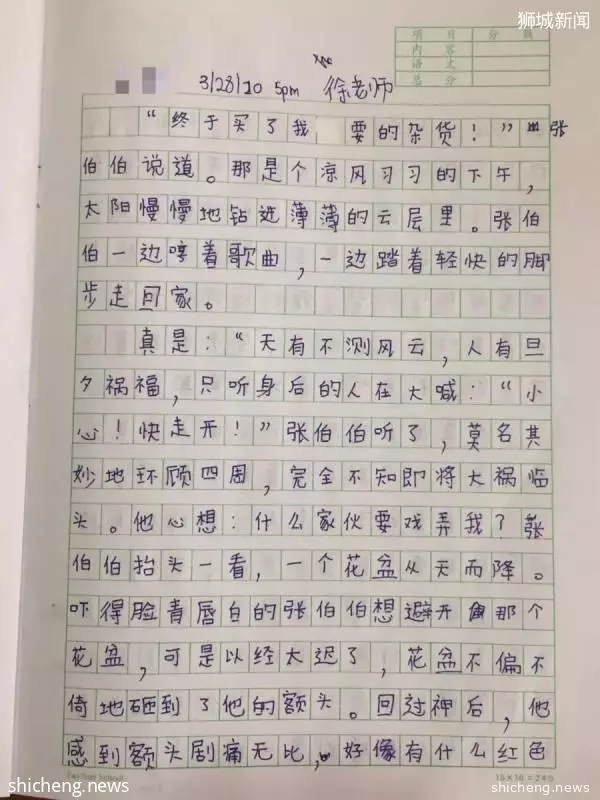 狮城新闻
项目 分额
内容
语文
总分
3/28/10 5pm 徐老师
“终于买了我 要的杂货！”张
伯伯说道。那是个凉风习习的下午，
太阳慢慢地钻进薄薄的云层里。张伯
伯一边哼着歌曲，一边踏着轻快的脚
步走回家。
真是：“天有不测风云，人有旦
夕祸福，只听身后的人在大喊：“小
心！快走开！”张伯伯听了，莫名其
妙地环顾四周，完全不知即将大祸临
头。他心想：什么家伙要戏弄我？张
伯伯抬头一看，一个花盆从天而降。
吓得脸青唇白的张伯伯想避开那个
花盆，可是以经太迟了，花盆不偏不
倚地砸到了他的额头。回过神后，他
感到额头剧痛无比，好像有什么红色
15×16=240
shicheng.news
shicheng.news